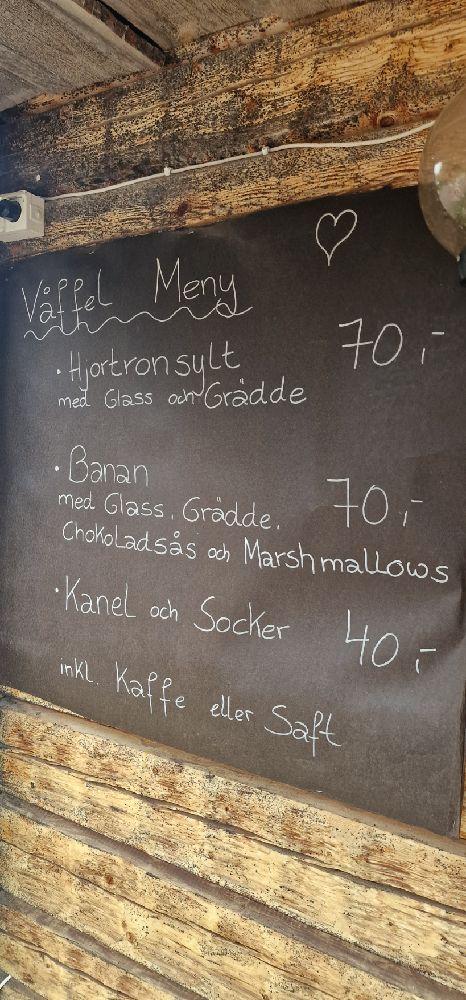 Våffel Meny
· Hjortronsylt 70,-
med Glass och Grädde
· Banan
med Glass, Grädde, 70,-
Chokoladsås och Marshmallows
· Kanel och Socker 40,-
inkl. Kaffe eller Saft